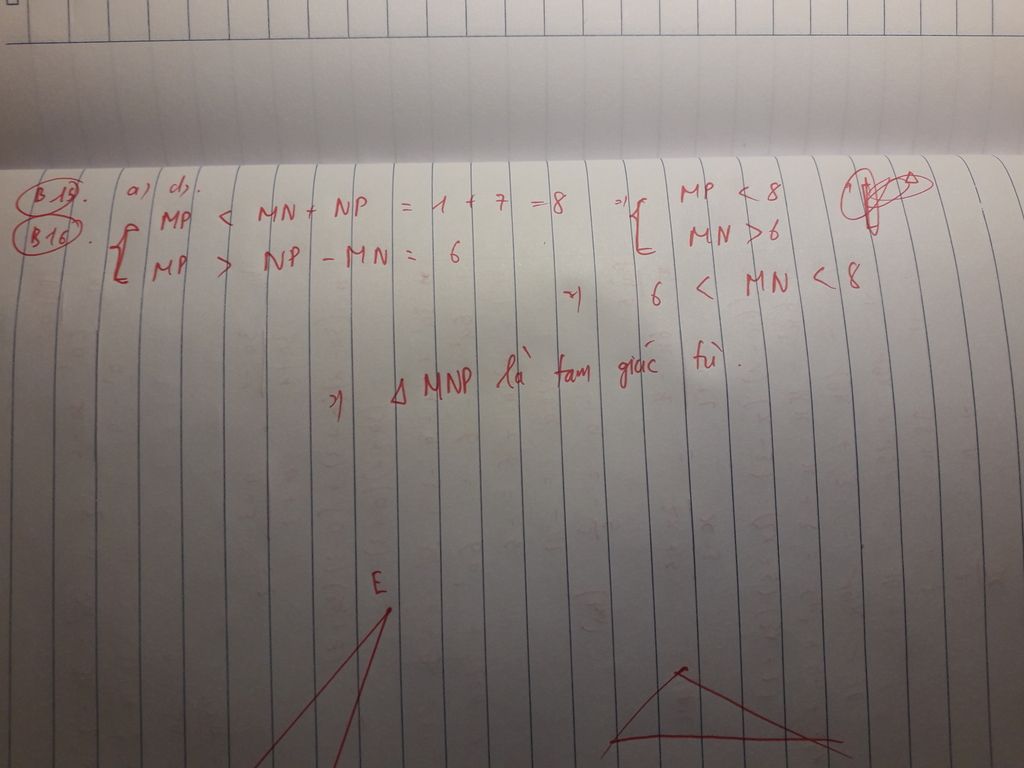 B 15. a) d).
B 16. { MP < MN + NP = 1 + 7 = 8 => { MP < 8
MP > NP - MN = 6 MN > 6
=> 6 < MN < 8
=> Δ MNP là tam giác tù.
E